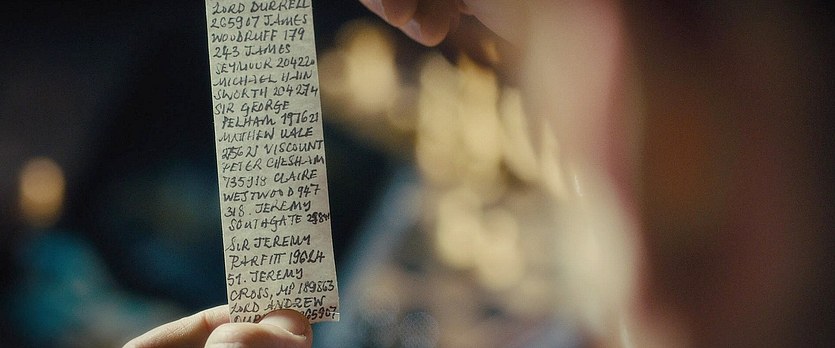 LORD DURRELL
265907 JAMES
WOODRUFF 179
243 JAMES
SEYMOUR 20422
MICHAEL HAIN
SWORTH 204274
SIR GEORGE
PELHAM 197621
MATTHEW VALE
25621 VISCOUNT
PETER CHESHAM
735918 CLAIRE
WESTWOOD 947
318. JEREMY
SOUTHGATE
SIR JEREMY
PARFITT 19624
51. JEREMY
CROSS, MP 189863
LORD ANDREW
65907